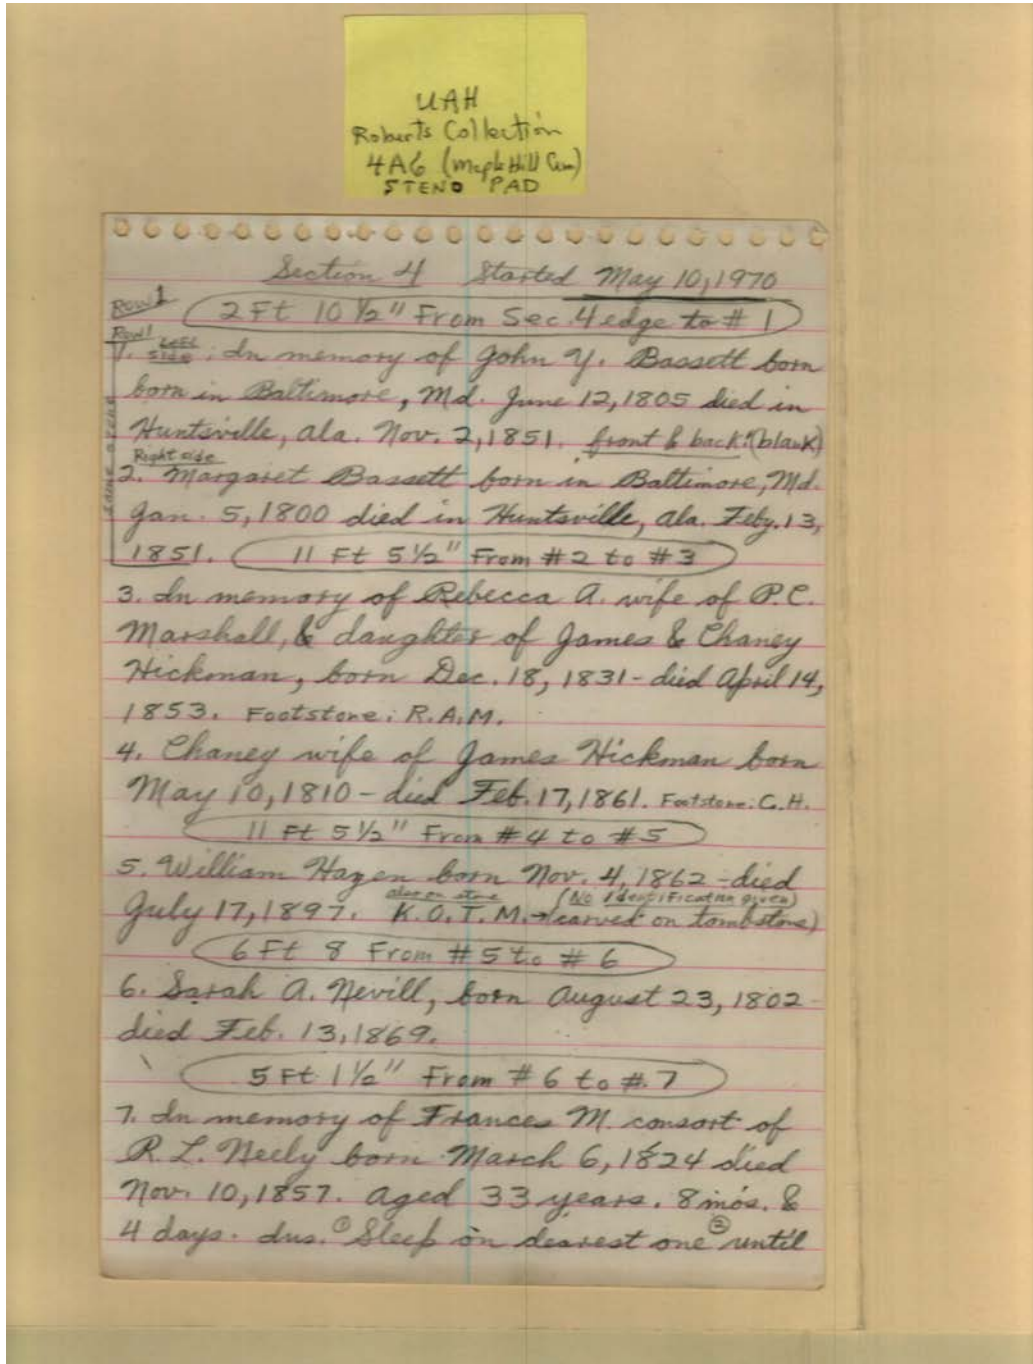 UAH
Roberts Collection
4A6 (Maple Hill Cem)
STENO PAD
Section 4 Started May 10, 1970
Row 1
2 Ft 10 ½" From Sec. 4 edge to # 1
Row 1
1. Left side: In memory of John Y. Bassett born
born in Baltimore, Md. June 12, 1805 died in
Huntsville, Ala. Nov. 2, 1851. front & back: (blank)
Right side
2. Margaret Bassett born in Baltimore, Md.
Jan. 5, 1800 died in Huntsville, Ala. Feby. 13,
1851. 11 Ft 5 ½" From # 2 to # 3
3. In memory of Rebecca A. wife of P.C.
Marshall, & daughter of James & Chaney
Hickman, born Dec. 18, 1831 - died April 14,
1853. Footstone: R.A.M.
4. Chaney wife of James Hickman born
May 10, 1810 - died Feb. 17, 1861. Footstone: C.H.
11 Ft 5 ½" From # 4 to # 5
5. William Hagen born Nov. 4, 1862 - died
also on stone (No identification given)
July 17, 1897. K.O.T.M. → carved on tombstone)
6 Ft 8 From # 5 to # 6
6. Sarah A. Nevill, born August 23, 1802 -
died Feb. 13, 1869.
5 Ft 1 ½" From # 6 to #. 7
7. In memory of Frances M. consort of
R. L. Neely born March 6, 1824 died
Nov. 10, 1857. aged 33 years. 8 mos. &
4 days. Ins. ① Sleep on dearest one ② until